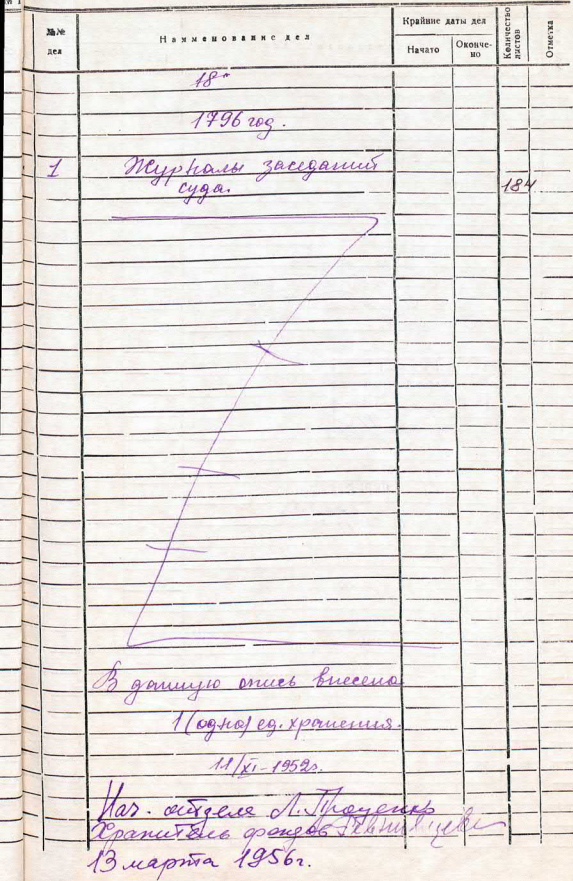 №№ дел
Наименование дел
Крайние даты дел
Начато
Окончено
Количество листов
Отметка
1796 год.
1
Журналы заседаний
суда.
184
В данную опись внесено
1 (одна) ед. хранения.
11/XI-1952г.
Нач. отдела Л. Проценко
Хранитель фондов
13 марта 1956г.